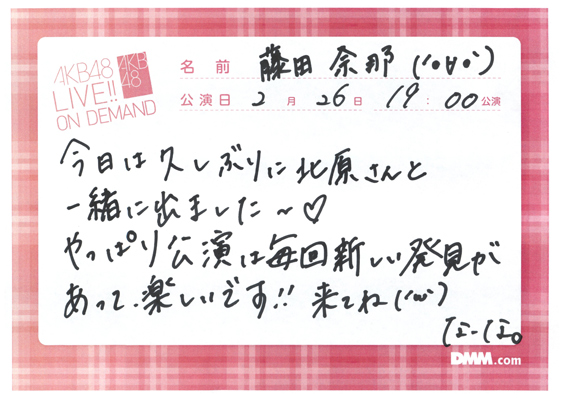 AKB48
LIVE!!
ON DEMAND
AKB
48
名前 藤田奈那 (*°∀°)
公演日 2月26日 19:00公演
今日は久しぶりに北原さんと
一緒に出ました～♡
やっぱり公演は毎回新しい発見が
あって、楽しいです!! 来てね(*'ω')
なーな。
DMM.com